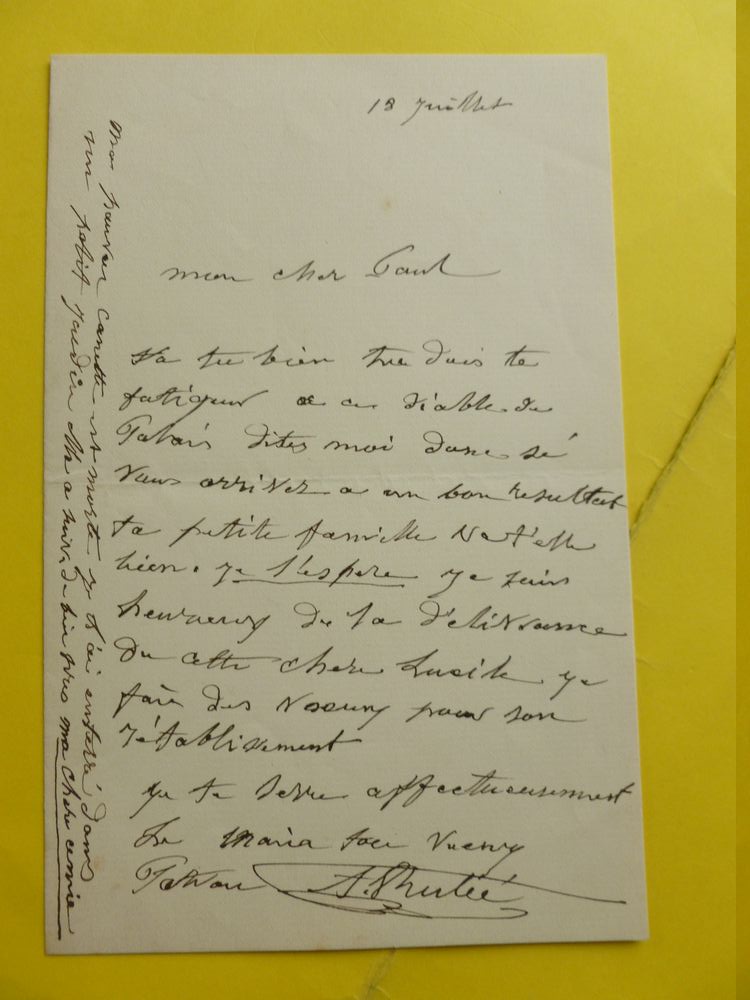 18 Juillet
mon cher Paul
Va tu bien tu dois te
fatiguer a ce diable de
Palais dites moi donc sé
vous arrivez a un bon resultat
ta petite famille va t'elle
bien. je l'espere je suis
heureux de la d'elivrance
de cette chere Lucile je
fais des voeux pour son
r'établisement
je te serre affectueusement
La main ton vieux
Patron A. Thulié
Ma pauvre canette est morte je l'ai enterré dans
un petit jardin elle a suivi de bien prés ma chere amie